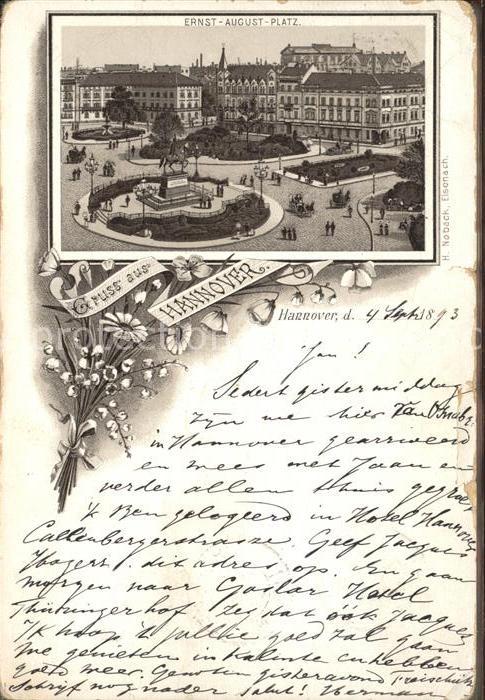 ERNST-AUGUST-PLATZ.
H. Noback, Eisenach.
Gruss aus
HANNOVER.
Hannover, d. 4 Sept 1893
Jan!
Sedert gister middag
zijn we hier
in Hannover gearriveerd
en wees met Jaan en
verder allen thuis gegroet
'k Ben gelogeerd in Hotel Hannover
Callenbergerstrasze. Geef Jacques
dit adres op. En gaan
morgen naar Goslar Hotel
Thüringerhof zeg dat óók Jacques
'k hoop 't jullie goed zal gaan
We genieten in kalmte en hebben
goed weer. gisteravond
Schrijf nog nader